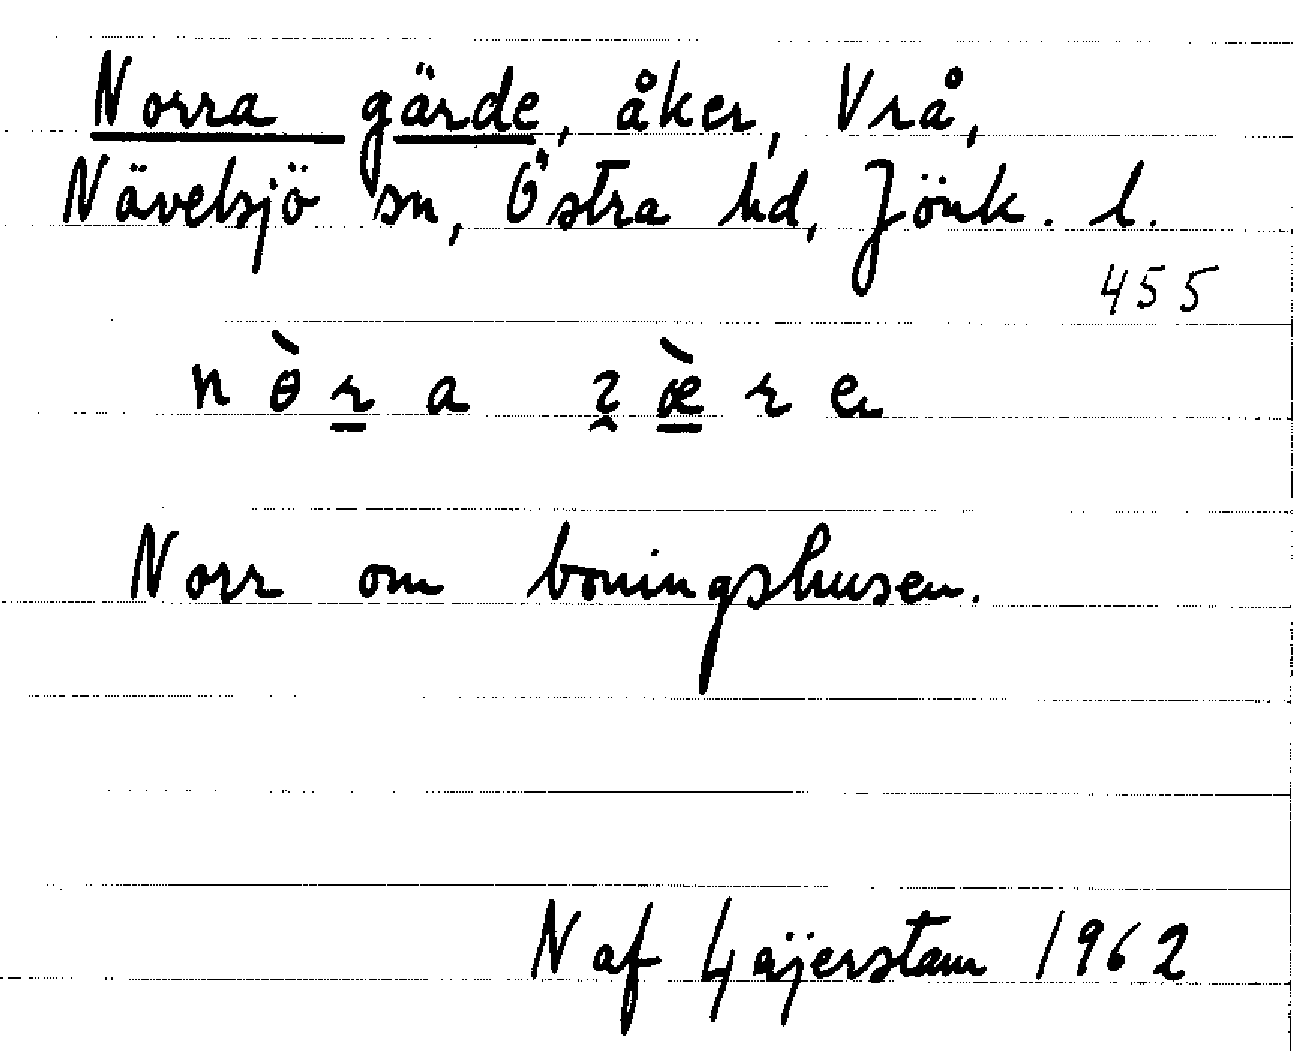 Norra gärde, åker, Vrå,
Nävelsjö sn, Östra hd, Jönk. l.
455
nɵ̀r̲a
Norr om boningshusen.
N af Gäijerstam 1962